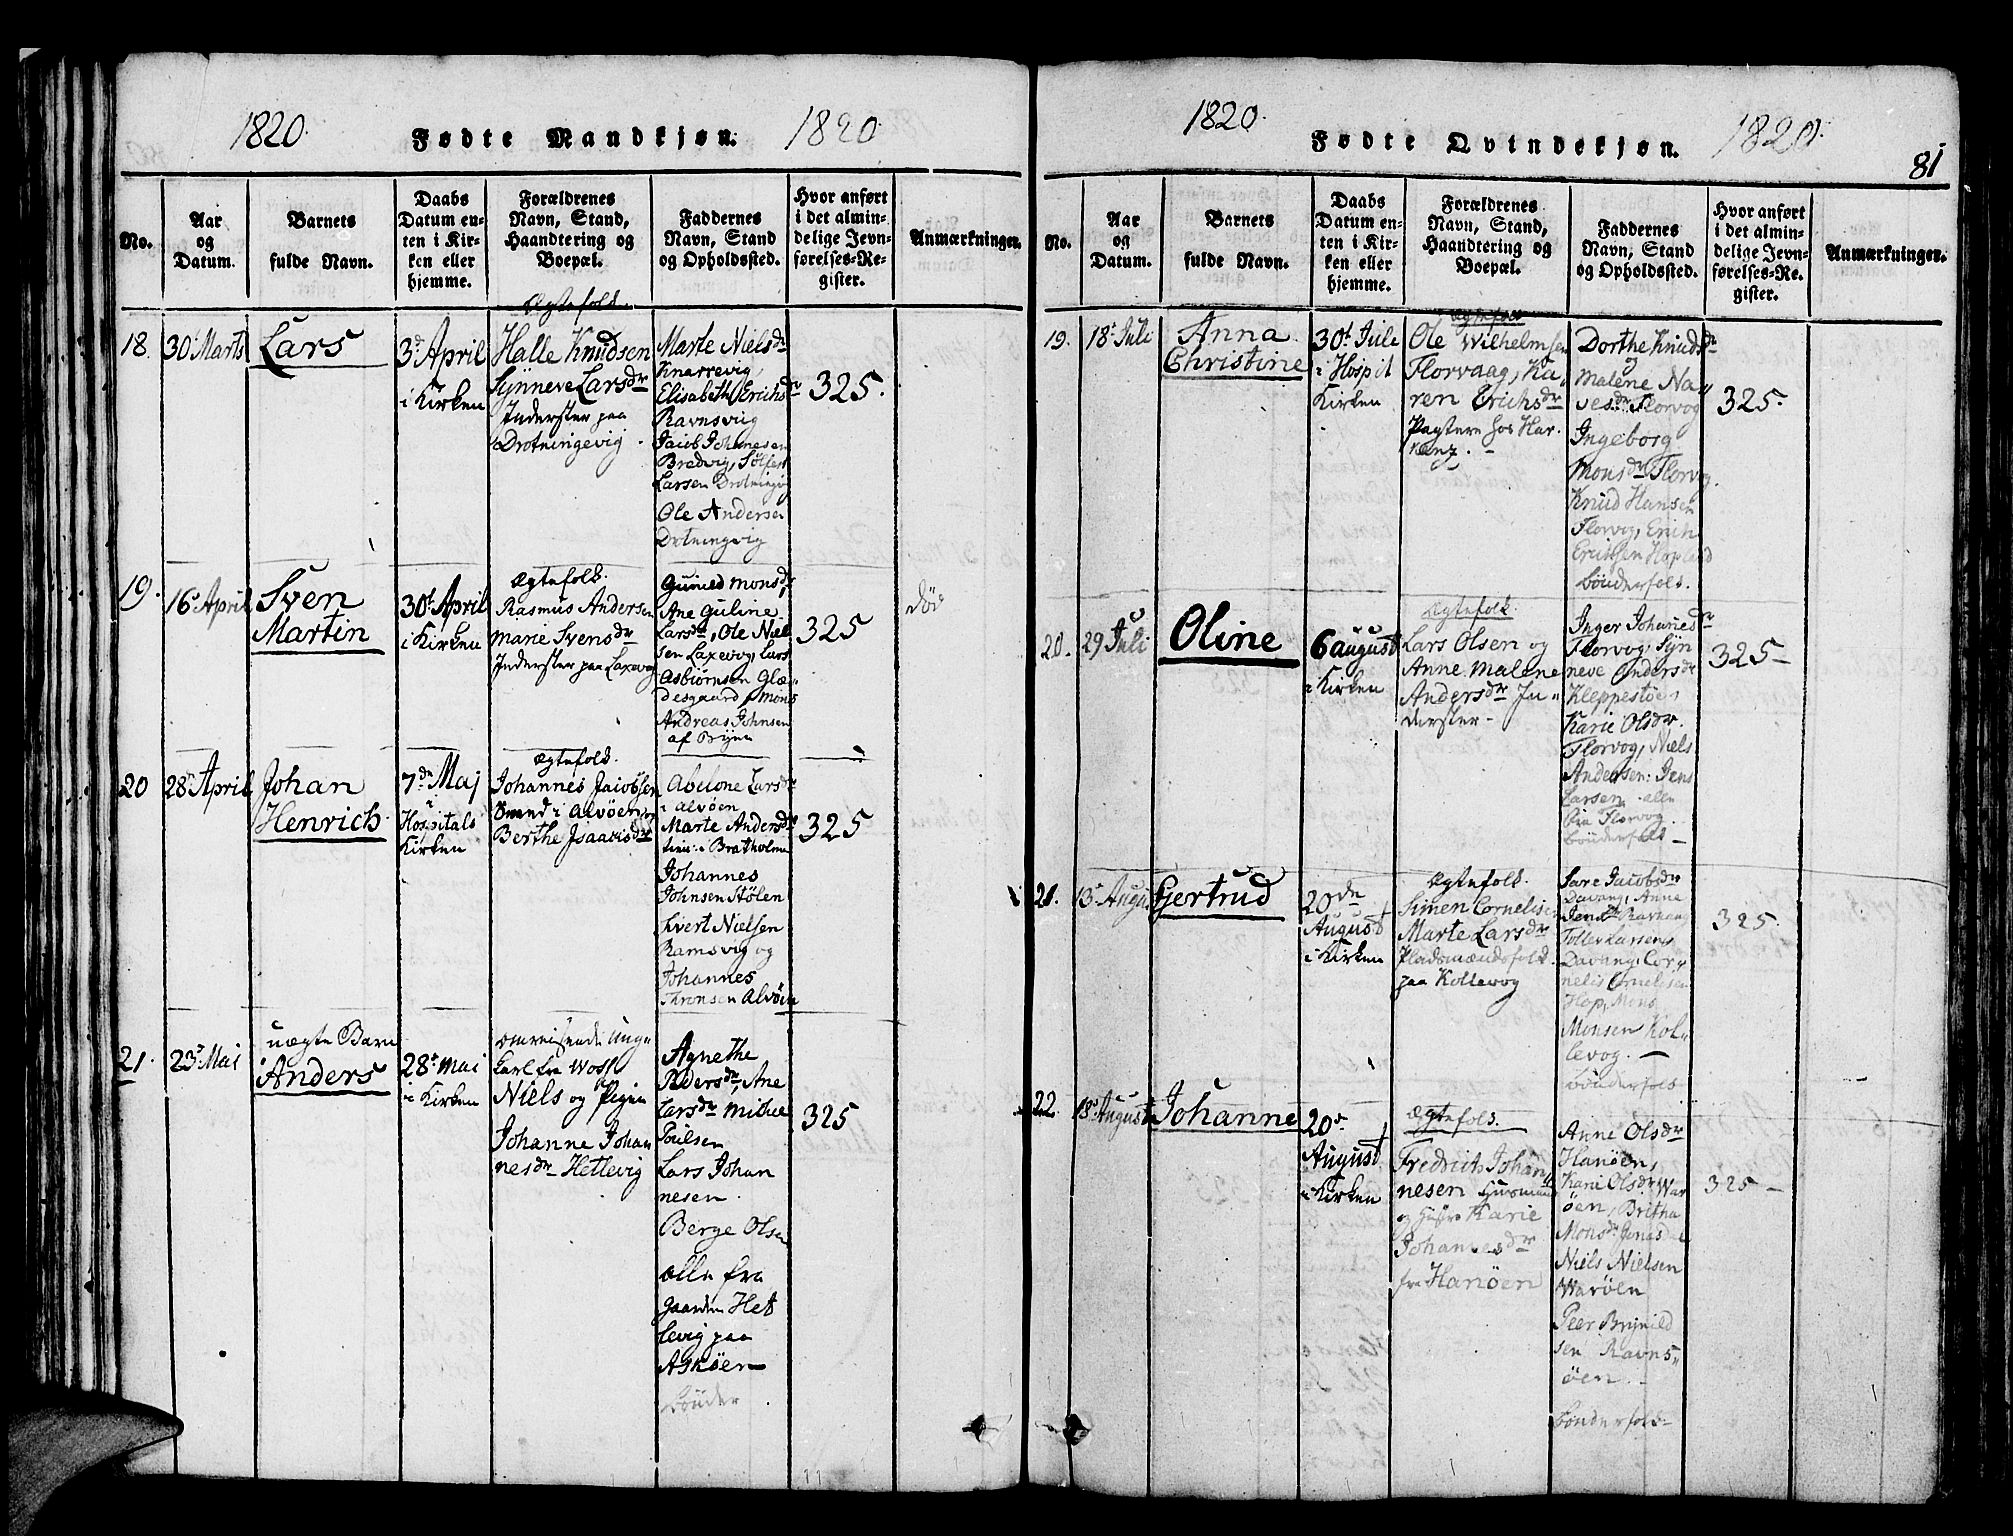 1820.
Fødte Mandkjøn.
1820
No.
Aar
og
Datum.
Barnets
fulde Navn.
Daabs
Datum en-
ten i Kir-
ken eller
hjemme.
Forældrenes
Navn, Stand,
Haandtering og
Boepæl.
Faddernes
Navn, Stand
og Opholdssted.
Hvor anført
i det almin-
delige Jevn-
førelses-Re-
gister.
Anmærkninger.
18.
30 Marts
Lars
3d April
i Kirken
Ægtefolk.
Halle Knudsen
Synneve Larsdr
Inderster paa
Drotningevig
Marte Nielsdr
Knarrevig,
Elisabeth Erichsdr
Ravnsvig
Jacob Johnnesen
Bredvig,
Larsen Drotningvig
Ole Andersen
Drotningvig
325.
19.
16 April
Sven
Martin
30t April
i Kirken
Ægtefolk.
Rasmus Andersen
Marie Svensdr
Inderster paa Laxevog
Gunild Monsdr,
Ane Guline
Larsdr, Ole Niel
sen Laxevog, Lars
Asbiørnsen Glæ-
desgaard, Mons
Andreas Johnsen
af Byen
325
død
20
28 April
Johan
Henrich.
7de Maj
i
Hospitals
Kirken
Ægtefolk.
Johannes Jacobsen
Svend i Alvøen og
Berthe Isaacsdr
Abelone Larsdr
i Alvøen
Marte Andersdr
Bratholmen
Johannes
Johnsen Stølen
Nielsen
Ramsvig og
Johannes
Thronsen Alvøen
325
21.
23 Mai
uægte Barn
Anders
28 Mai
i Kirken
omreisende Ung-
karl fra Woss
Niels og Pigen
Johanne Johan
nesdr Hetlevig
Agnethe
Pedersdr, Ane
Larsdr Mickel
Poulsen
Lars Johan
nesen
Berge Olsen
alle fra
gaarden Het
levig paa
Askøen
Bønder
325
1820.
Fødte Qvindekjøn.
1820.
81
No.
Aar
og
Datum.
Barnets
fulde Navn.
Daabs
Datum en-
ten i Kir-
ken eller
hjemme.
Forældrenes
Navn, Stand,
Haandtering og
Boepæl.
Faddernes
Navn, Stand
og Opholdssted.
Hvor anført
i det almin-
delige Jevn-
førelses-Re-
gister.
Anmærkninger.
19.
18 Juli
Anna
Christine
30t Julii
i Hospit
Kirken
Ægtefolk
Ole Wilhelmsen
Florvaag, Ka-
ren Erichsdr
hos
Dorthe Knudsdr
og
Malene Na-
vesdr Florvog
Ingeborg
Monsdr Florvog.
Knud Hansen
Florvog, Erich
Erichsen Hopland
Bønderfolk.
325.
20.
29 Juli
Oline
6 August
i Kirken
Ægtefolk.
Lars Olsen og
Anne Malene
Andersdr In-
derster
Inger Johanesdr
Florvog, Syn
neve Andersdr
Kleppestøe,
Karie Olsdr.
Florvog, Niels
Andersen: Jens
Larsen alle
fra Florvog.
Bønderfolk
325
21.
13 August
Gertrud
20de
August
i Kirken
Ægtefolk.
Simen Cornelisen
Marte Larsdr
Pladsmandsfolk
paa Kollevog
Sare Jacobsdr
Davang, Anne
Jensdr
Tollev Larsen,
Davang, Cor-
nelis Cornelisen
Hop, Mons
Monsen Kol-
levog.
Bønderfolk
325.
22
18 August
Johanne
20
August
i Kirken
Ægtefolk.
Fredrich Johan-
nesen Husmand
og Karie
Johannesdr
fra Hanøen
Anne Olsdr
Hanøen,
Karie Olsdr War
øen, Britha
Monsdr
Niels Nielsen
Warøen
Peer Brynild
sen Ravns-
øen
Bønderfolk
325